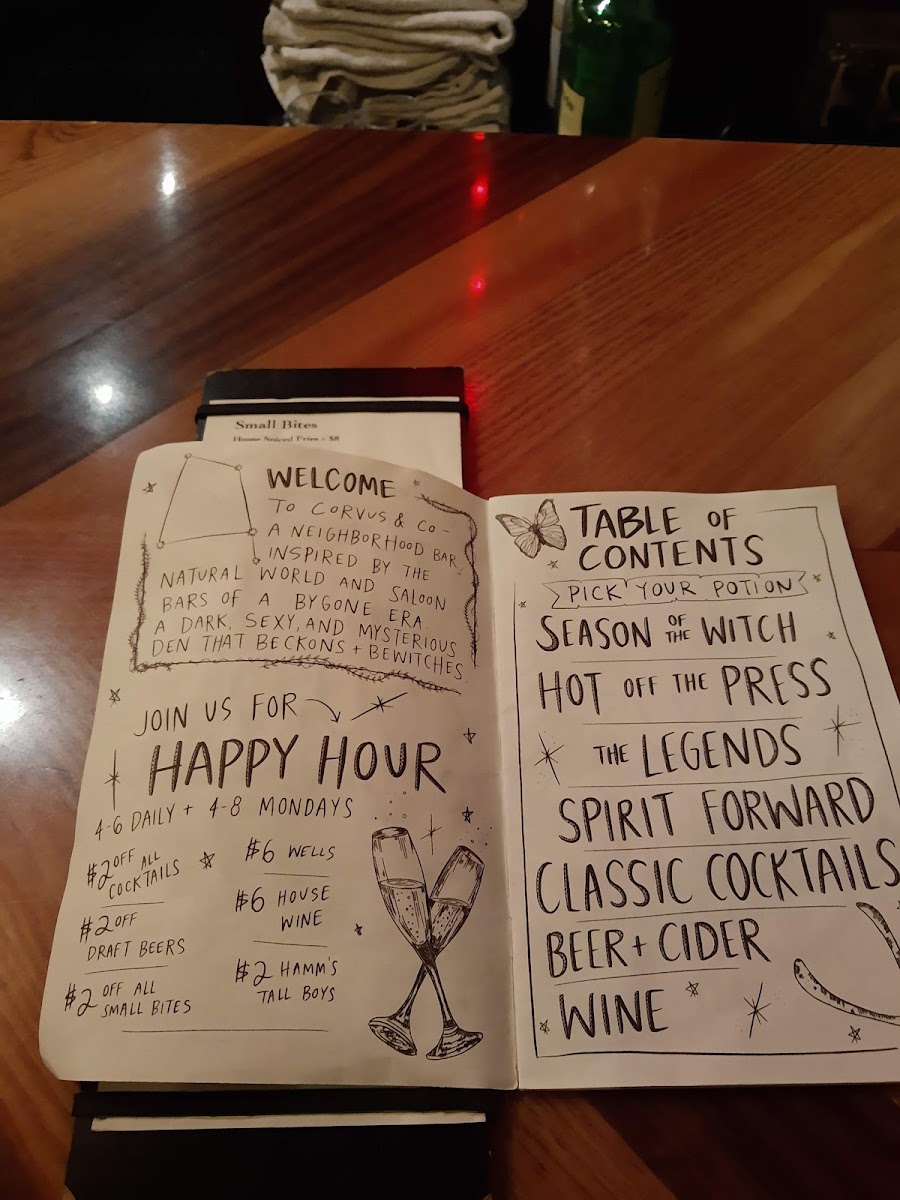 Small Bites
House Spiced Fries - $8
WELCOME
TO CORVUS & CO -
A NEIGHBORHOOD BAR,
INSPIRED BY THE
NATURAL WORLD AND SALOON
BARS OF A BYGONE ERA.
A DARK, SEXY, AND MYSTERIOUS
DEN THAT BECKONS + BEWITCHES
JOIN US FOR
HAPPY HOUR
4-6 DAILY + 4-8 MONDAYS
$2 OFF ALL
COCKTAILS
$2 OFF
DRAFT BEERS
$2 OFF ALL
SMALL BITES
$6 WELLS
$6 HOUSE
WINE
$2 HAMM'S
TALL BOYS
TABLE OF
CONTENTS
PICK YOUR POTION
SEASON OF THE WITCH
HOT OFF THE PRESS
THE LEGENDS
SPIRIT FORWARD
CLASSIC COCKTAILS
BEER + CIDER
WINE